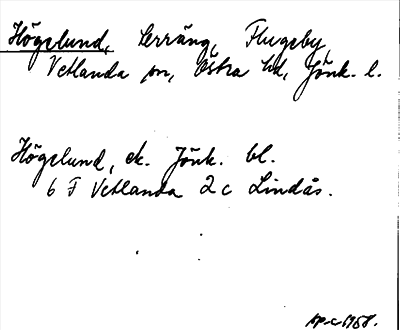 Högelund, Terräng, Flugeby,
Vetlanda sn, Östra hd, Jönk. l.
Högelund, ek. Jönk. bl.
6 F Vetlanda 2 c Lindås.
1958.